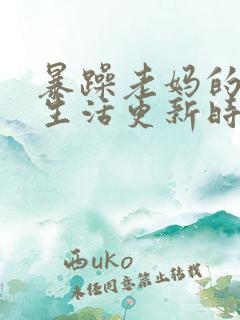 暴躁老妈的
生活更新时
西uko
未经同意禁止转载